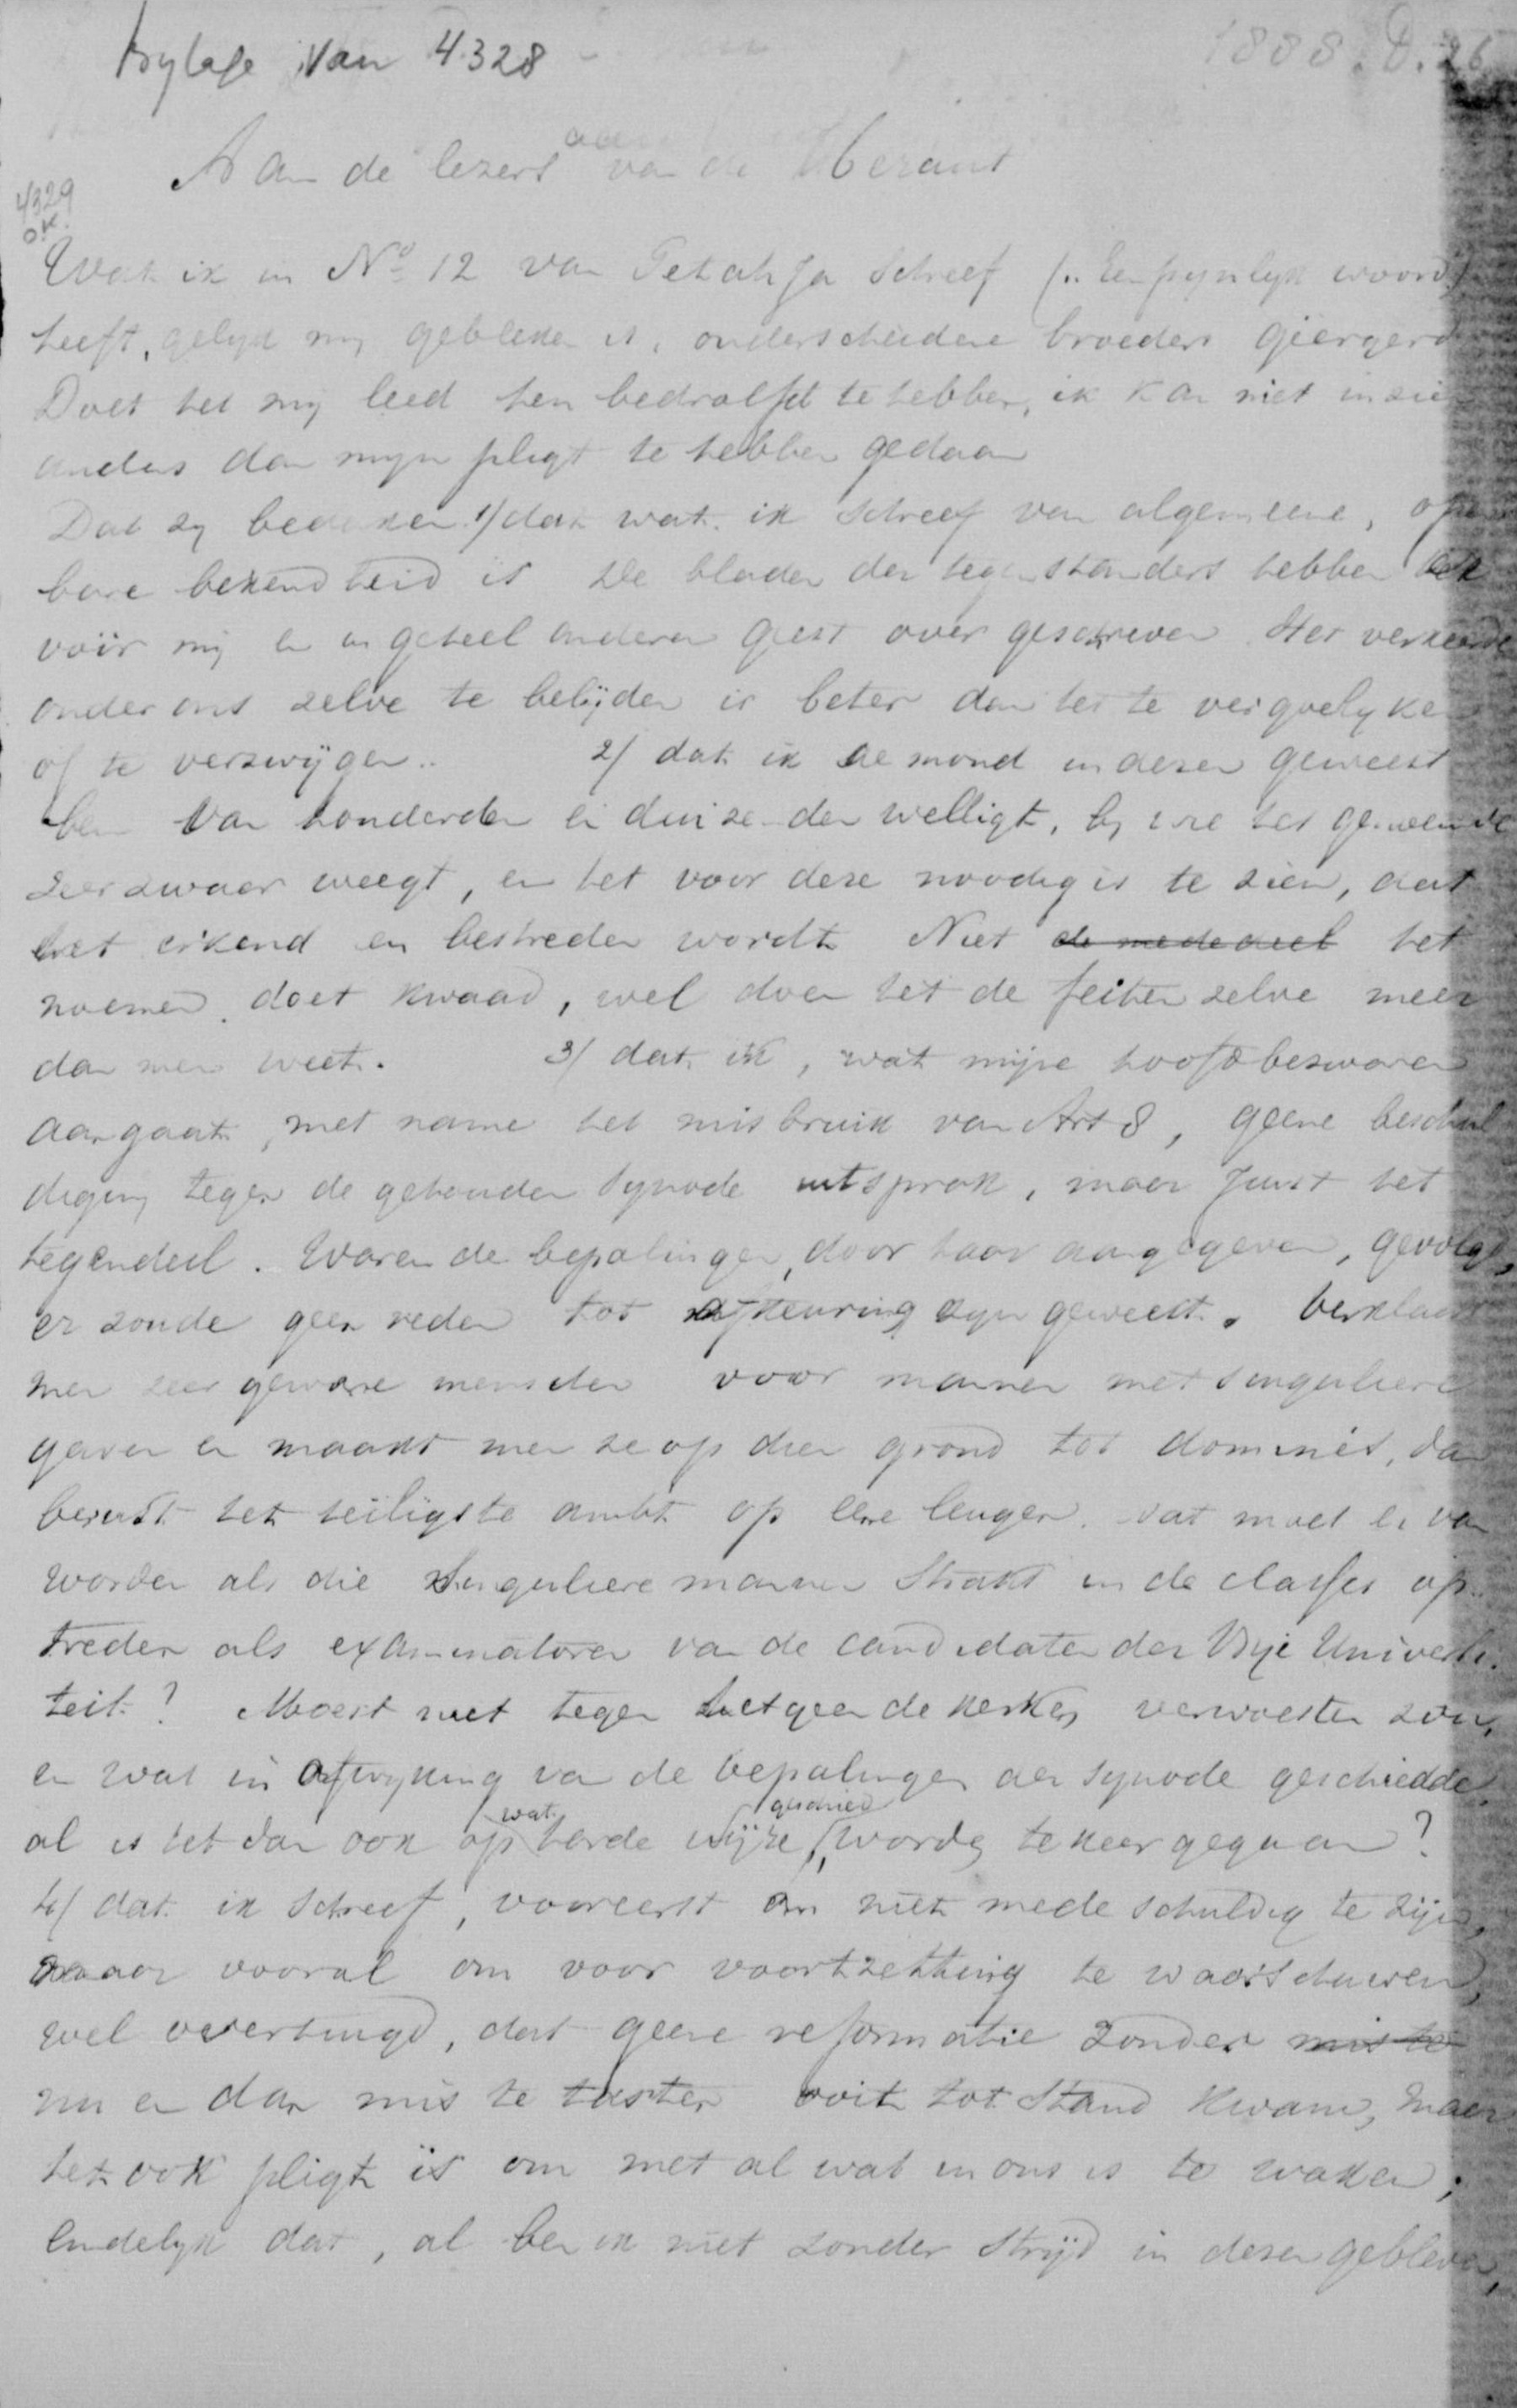 bylage van 4328
1888. D. 26
Aan de lezers van de Heraut
4329
OK.
Wat ik in No 12 van Petahja schreef („Een pynlyk woord")
heeft, gelyk my gebleken is, onderscheidene broeders geërgerd
Doet het my leed hen bedroefd te hebben, ik kan niet inzien
anders dan myn pligt te hebben gedaan
Dat zy bedenken 1/ dat wat ik schreef van algemeene, open
bare bekendheid is De bladen der tegenstanders hebben
vóór mij en in geheel anderen geest over geschreven. Het verkeerde
onder ons zelve te belijden is beter dan het te vergoelyken
of te verzwijgen.. 2/ dat ik de mond in dezen geweest
ben van honderden en duizenden welligt, by wie het genoemde
zeer zwaar weegt, en het voor deze noodig is te zien, dat
het erkend en bestreden wordt Niet de mededeel het
noemen doet kwaad, wel doen het de feiten zelve meer
dan men weet. 3/ dat ik, wat mijne hoofdbezwaren
aangaat, met name het misbruik van Art 8, geene beschul
diging tegen de gehouden Synode uitsprak, maar juist het
tegendeel. Waren de bepalingen, door haar aangegeven, gevolgd,
er zoude geen reden tot afkeuring zyn geweest. Verklaart
men zeer gewone menschen voor mannen met singuliere
gaven en maakt men ze op dien grond tot dominés, dan
berust het heiligste ambt op eene leugen. Wat moet er van
worden als die singuliere mannen straks in de classes op
treden als examinatoren van de candidaten der Vrije Universi
teit? Moest niet tegen hetgeen de kerken verwoesten zou,
en wat in afwyking van de bepalingen der synode geschiedde,
al is het dan ook op wat harde wijze geschied, worden te keer gegaan?
4/ dat ik schreef, vooreerst om niet mede schuldig te zijn,
maar vooral om voor voortzetting te waarschuwen,
wel overtuigd, dat geene reformatie zonder mis te
nu en dan mis te tasten ooit tot stand kwam, maar
het ook pligt is om met al wat in ons is te waken;
Eindelyk dat, al ben ik niet zonder strijd in dezen gebleven,